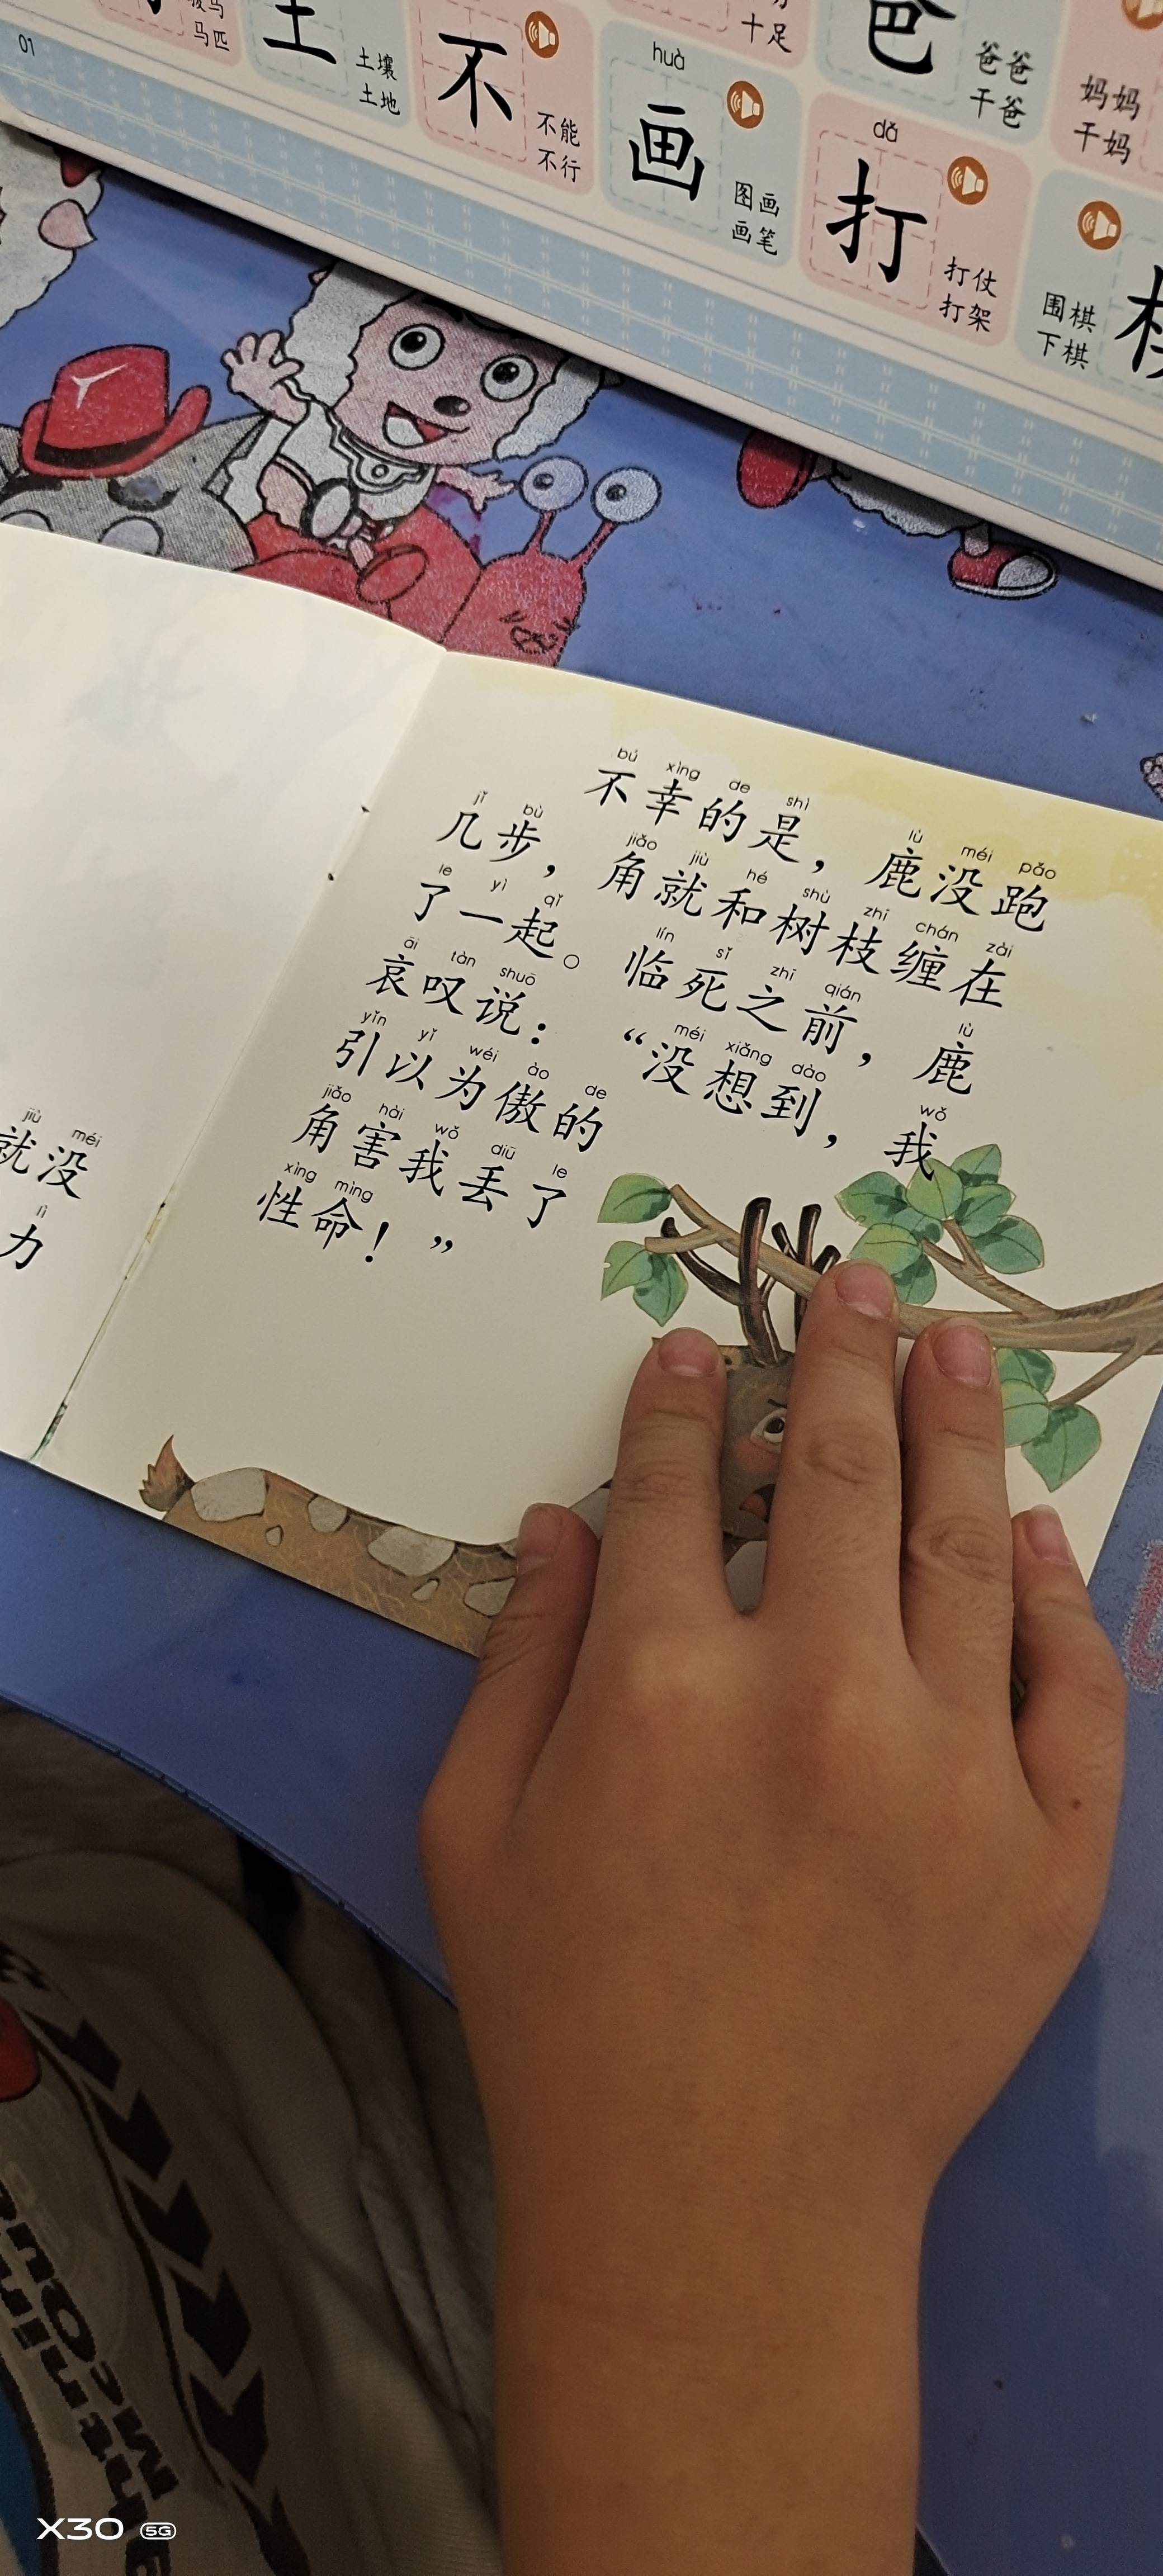 01
马匹
土
土壤
土地
不
不能
不行
huà
画
图画
画笔
十足
爸
爸爸
干爸
dǎ
打
打仗
打架
妈妈
干妈
围棋
下棋
bú xìng de shì lù méi pǎo
不幸的是，鹿没跑
jǐ bù jiǎo jiù hé shù zhī chán zài
几步，角就和树枝缠在
le yì qǐ lín sǐ zhī qián lù
了一起。临死之前，鹿
āi tàn shuō méi xiǎng dào wǒ
哀叹说：“没想到，我
yǐn yǐ wéi ào de
引以为傲的
jiǎo hài wǒ diū le
角害我丢了
xìng mìng
性命！”
jiù méi
就没
lì
力
X30 5G